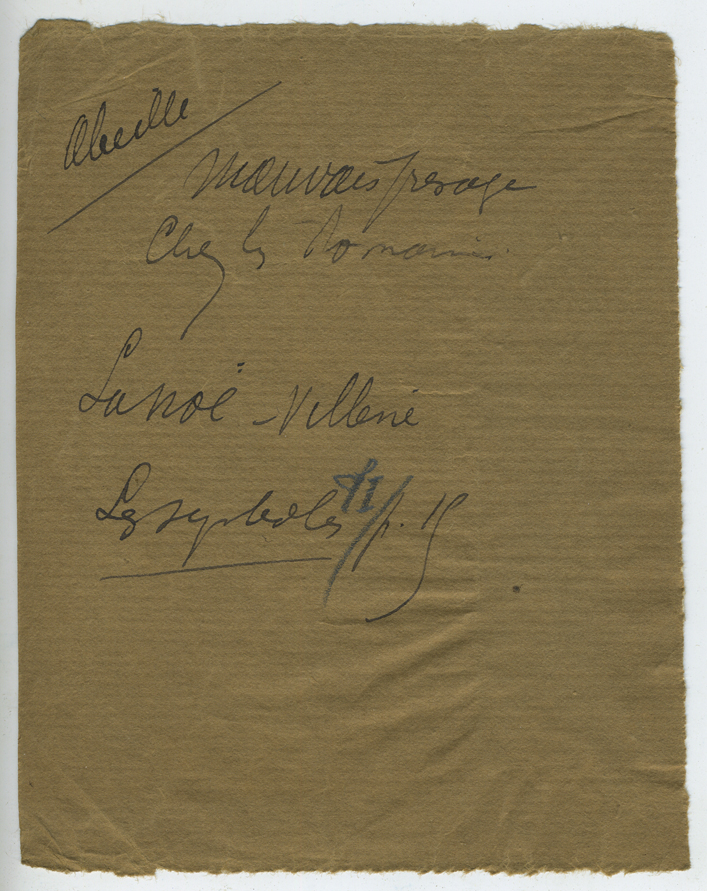 Abeille
Mauvais presage
Chez les Romains
Lanoë-Villene
Les symboles TI/p. 19